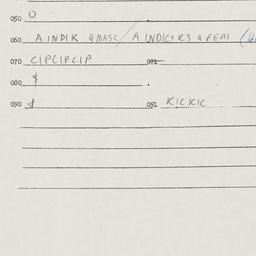 050 O
060 A INDIK 9 MASC/ A INDIC+K3 9 FEM
070 CIPCIPCIP 071
080 $
090 $ 091 KICKIC